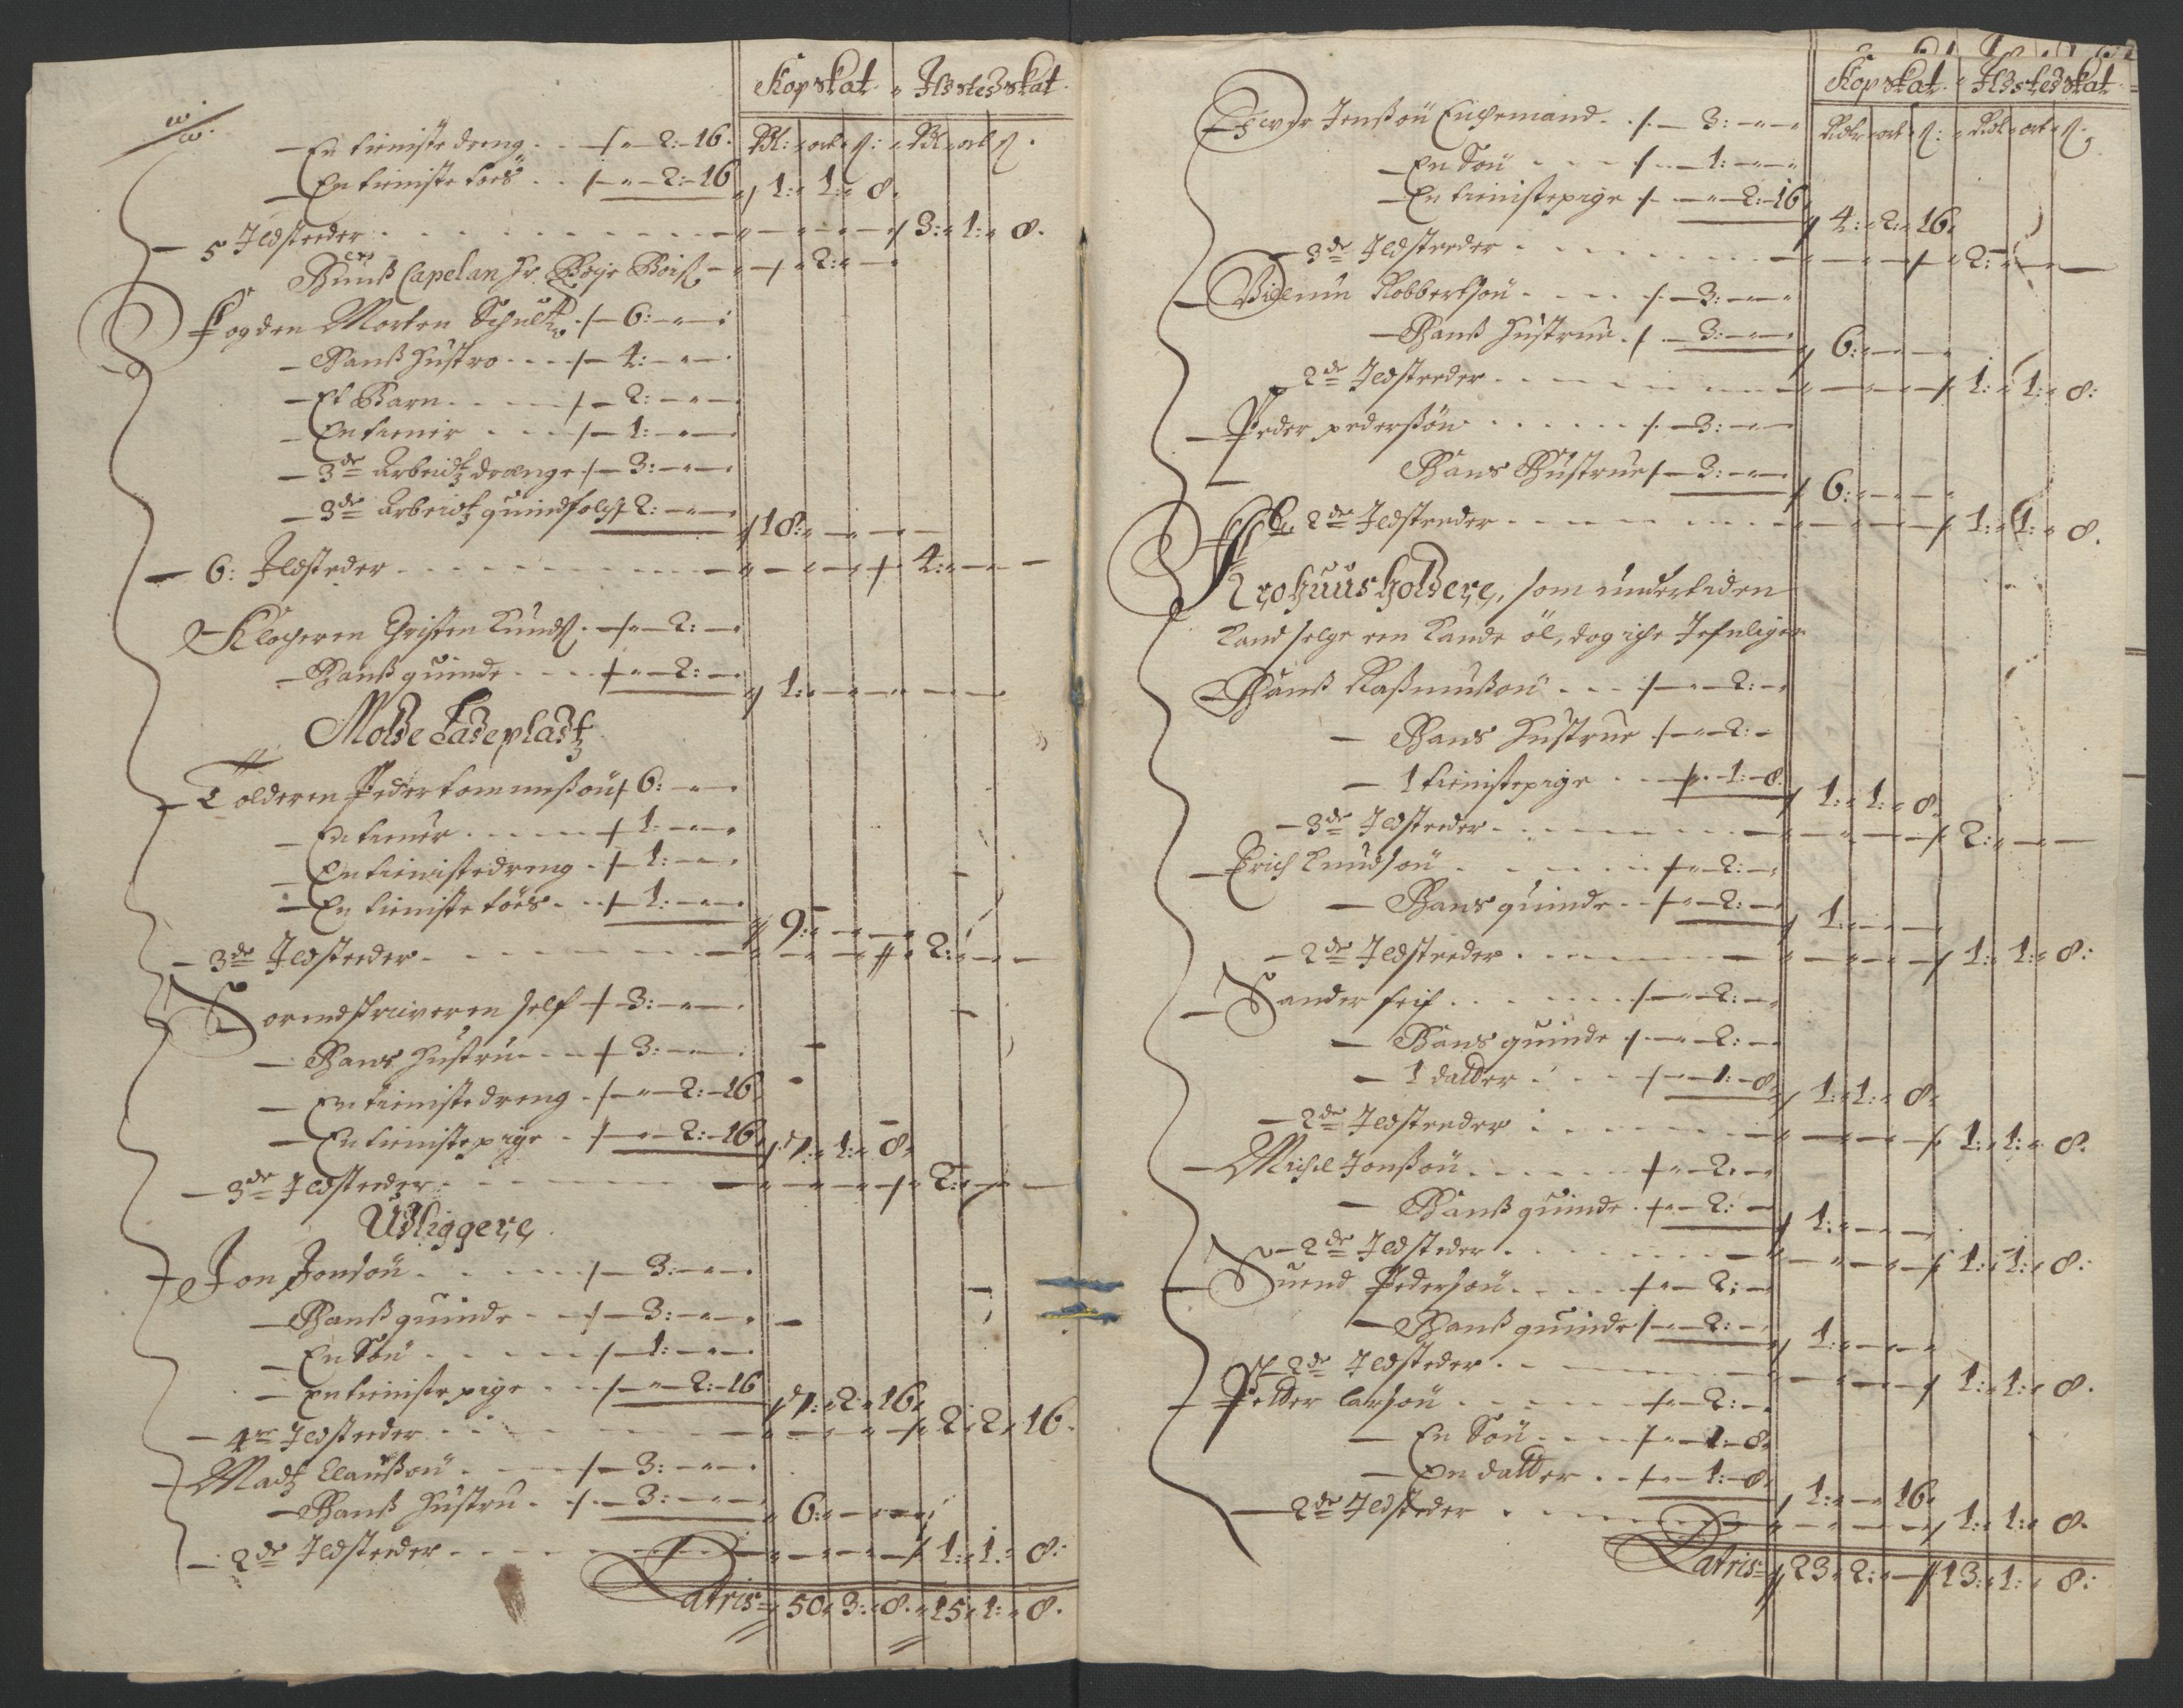 Kopskat. Ildstedskat.
Rd: ort ß: Rd ort ß.
En tieniste dreng . . /- 2:-16.
En tieniste töes . . /- 2:-16 1: 1: 8.
5 Ildsteeder . . . 3: 1: 8.
Capelan Hr. 2:
Fogden Morten Schultz /- 6:
Hanß Hustro . . . /- 4:
Et Barn . . . /- 2:
En tiener . . . /- 1:
3de Arbeidtz drenge /- 3:
3de Arbeidtz quindfolch 2: 18:
6: Ildsteder . . . 4:
Klocheren Christen Knuds . /- 2:
Hanß quinde . . . /- 2: 1:
Molde Ladepladtz
Tolderen Peder tommeßön /- 6:
En tiener . . . /- 1:
En tienistedreng . /- 1:
En tieniste töes . . /- 1: 9:
3de Ildsteeder . . . 2:
Sorendskriveren self /- 3:
Hans Hustru . . /- 3:
En tienistedreng . /- 2:-16
En tienistepige . /- 2:-16 7: 1: 8.
3de Ildsteeder . . . 2:
Udliggere
Jon Jonsön . . . /- 3:
Hanß quinde . . /- 3:
En Sön . . . /- 1:
En tieniste pige . . /- 2:-16 7: 2: 16.
4re Ildsteeder . . . 2: 2: 16.
Madtz Claußön . . . /- 3:
Hanß Hustru . /- 3: 6:
2de Ildsteeder . . . 1: 1: 8:
Latris 50: 3: 8. 15: 1: 8.
Kopskat. Ildstedskat.
Rdlr ort ß: Rdl ort ß.
Iver Jenßön Enchemand . /- 3:
En Sön . . . /- 1:
En tienistepige /- 2:-16 4: 2: 16.
3de Ildsteeder . . . 2:
Robbertsön . . . /- 3:
Hanß Hustrue . /- 3: 6:
2de Ildsteeder . . . 1: 1: 8:
Peder pederßön . . . /- 3:
Hans Hustrue /- 3: 6:
2de Ildsteeder . . . 1: 1: 8.
Krohuusholdere, som undertiden
kand selge een kande öl, dog iche Jefnligen
Hanß Raßmußön . . . /- 2:
Hans Hustrue /- 2:
1 tienistepige . . /- 1:-8. 1: 1: 8.
3de Ildsteeder . . . 2:
Erich Knudsön . . . /- 2:
Hans quinde . . /- 2: 1:
2de Ildsteeder . . . 1: 1: 8:
Sander . . . /- 2:
Hans quinde /- 2:
1 datter . . . /- 1:-8. 1: 1: 8.
2de Ildsteeder . . . 1: 1: 8.
Michel Jonßön . . . /- 2:
Hanß quinde . /- 2: 1:
2de Ildsteder . . . 1: 1: 8:
Suend Pedersön . . . /- 2:
Hanß quinde /- 2: 1:
2de Ildsteder . . . 1: 1: 8.
Petter larsön . . . /- 2:
En Sön . . . /- 1:-8.
En datter . . /- 1:-8. 1: 16.
2de Ildsteder . . . 1: 1: 8.
Latris 23: 2: 13: 1: 8: